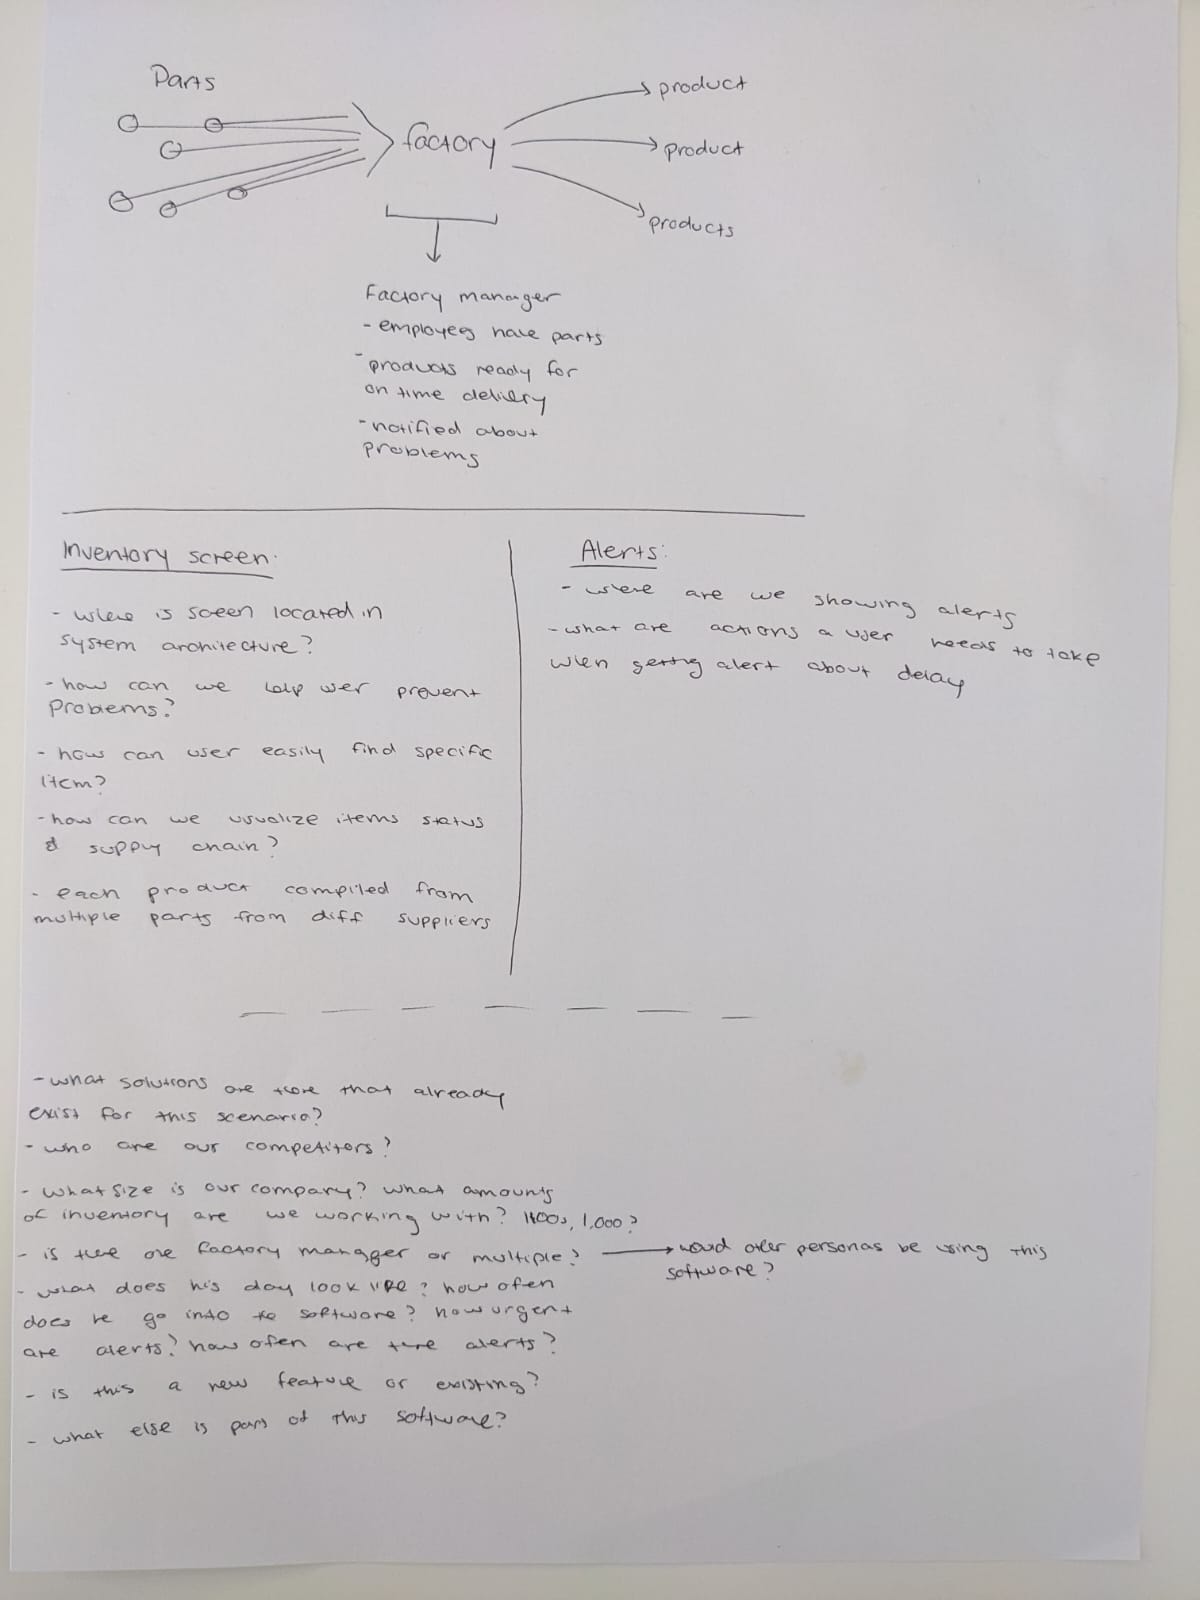 Parts
product
factory
product
products
Factory manager
- employees have parts
- products ready for
on time delivery
- notified about
problems
Inventory screen:
- where is screen located in
system architecture?
- how can we help user prevent
problems?
- how can user easily find specific
item?
- how can we visualize items status
& supply chain?
- each product compiled from
multiple parts from diff suppliers
Alerts:
- where are we showing alerts
- what are actions a user needs to take
when getting alert about delay
- what solutions are there that already
exist for this scenario?
- who are our competitors?
- what size is our company? what amounts
of inventory are we working with? 100s, 1,000?
- is there one factory manager or multiple? → would other personas be using this
software?
- what does his day look like? how often
does he go into the software? how urgent
are alerts? how often are there alerts?
- is this a new feature or existing?
- what else is part of this software?